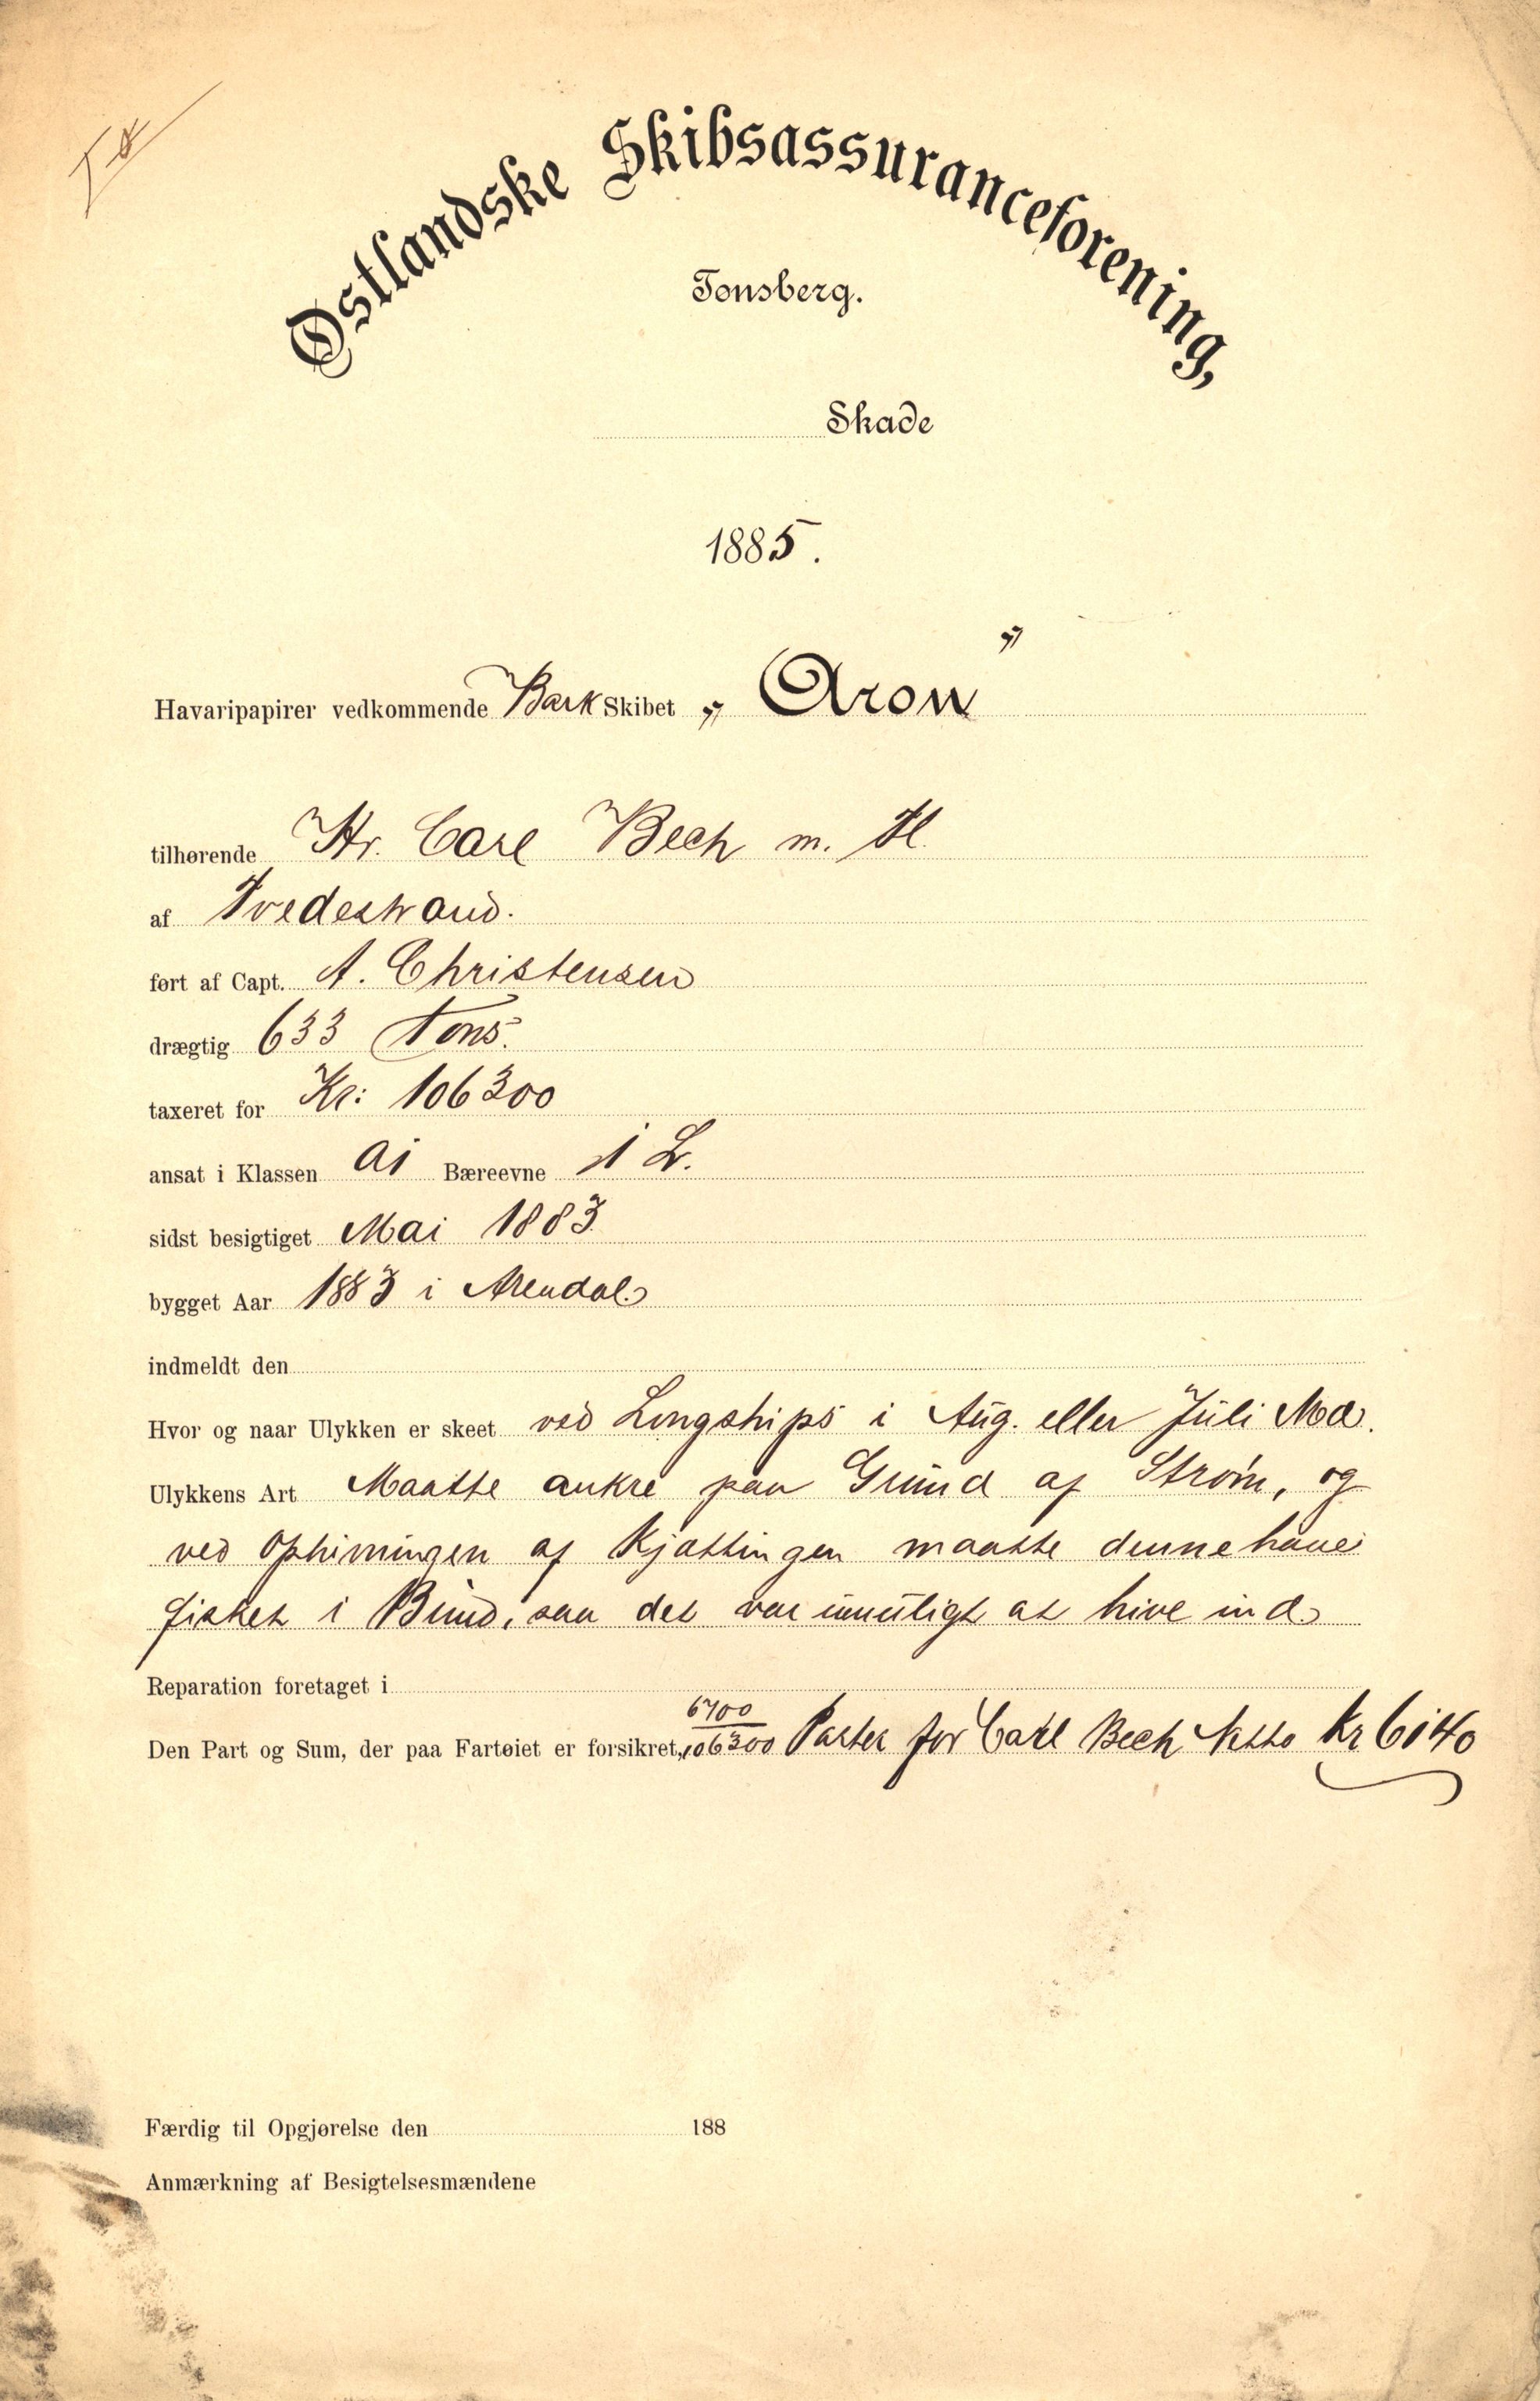 Østlandske Skibsassuranceforening,
Tønsberg.
Skade
1885.
Havaripapirer vedkommende Bark Skibet „Aron"
tilhørende Hr. Carl Bech m. Fl.
af Tvedestrand.
ført af Capt. A. Christensen
drægtig 633 Tons.
taxeret for Kr: 106300
ansat i Klassen A1 Bæreevne 1 L.
sidst besigtiget Mai 1883
bygget Aar 1883 i Arendal
indmeldt den
Hvor og naar Ulykken er skeet ved Longships i Aug. eller Juli Md.
Ulykkens Art Maatte ankre paa Grund af Strøm, og
ved Ophivningen af Kjættingen maatte denne have
fisket i Bund, saa det var umuligt at hive ind
Reparation foretaget i
Den Part og Sum, der paa Fartøiet er forsikret, 6700/106300 Parter for Carl Bech Netto Kr 6140
Færdig til Opgjørelse den 188
Anmærkning af Besigtelsesmændene